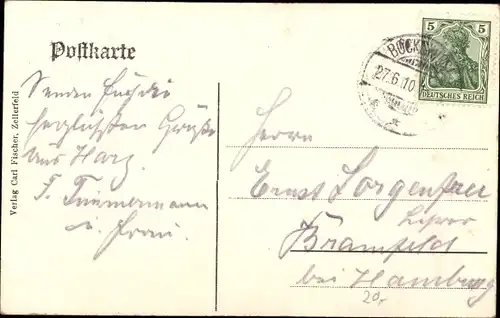 Postkarte
Senden Euch die
herzlichsten Grüße
aus Harz
F. Timmermann
u. Frau.
Verlag Carl Fischer, Zellerfeld
5 5
DEUTSCHES REICH
27.6.10
Herrn
Ernst Sorgenfrei
Lehrer
Bramfeld
bei Hamburg
20,-